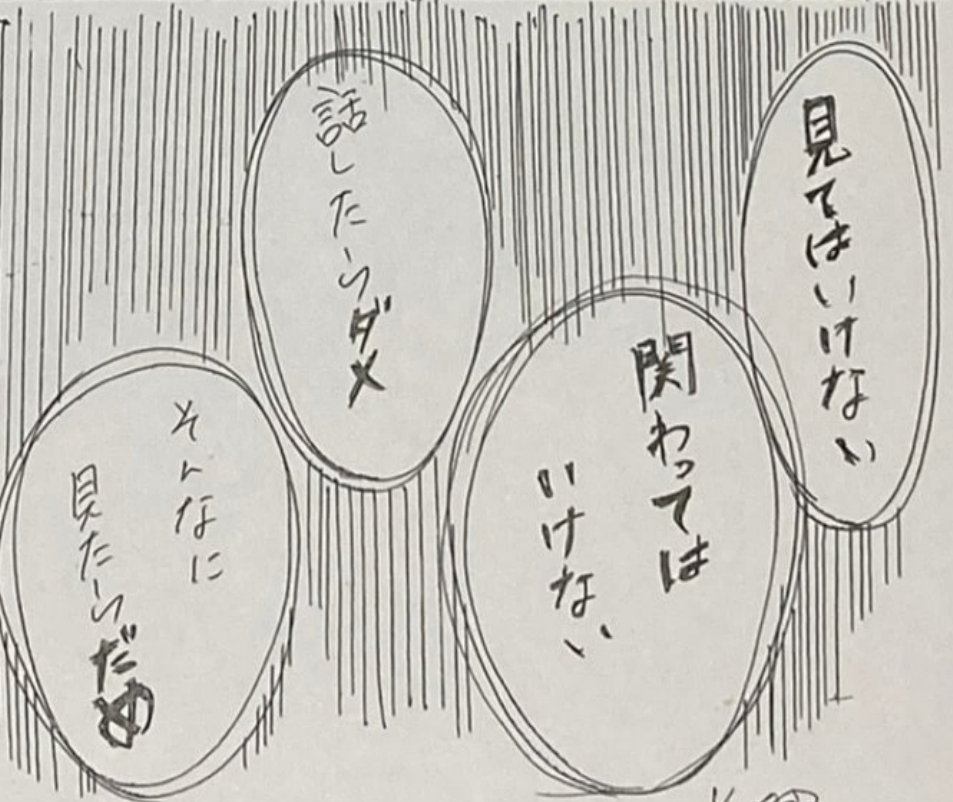 見てはいけない
関わっては
いけない
話したらダメ
そんなに
見たらだめ